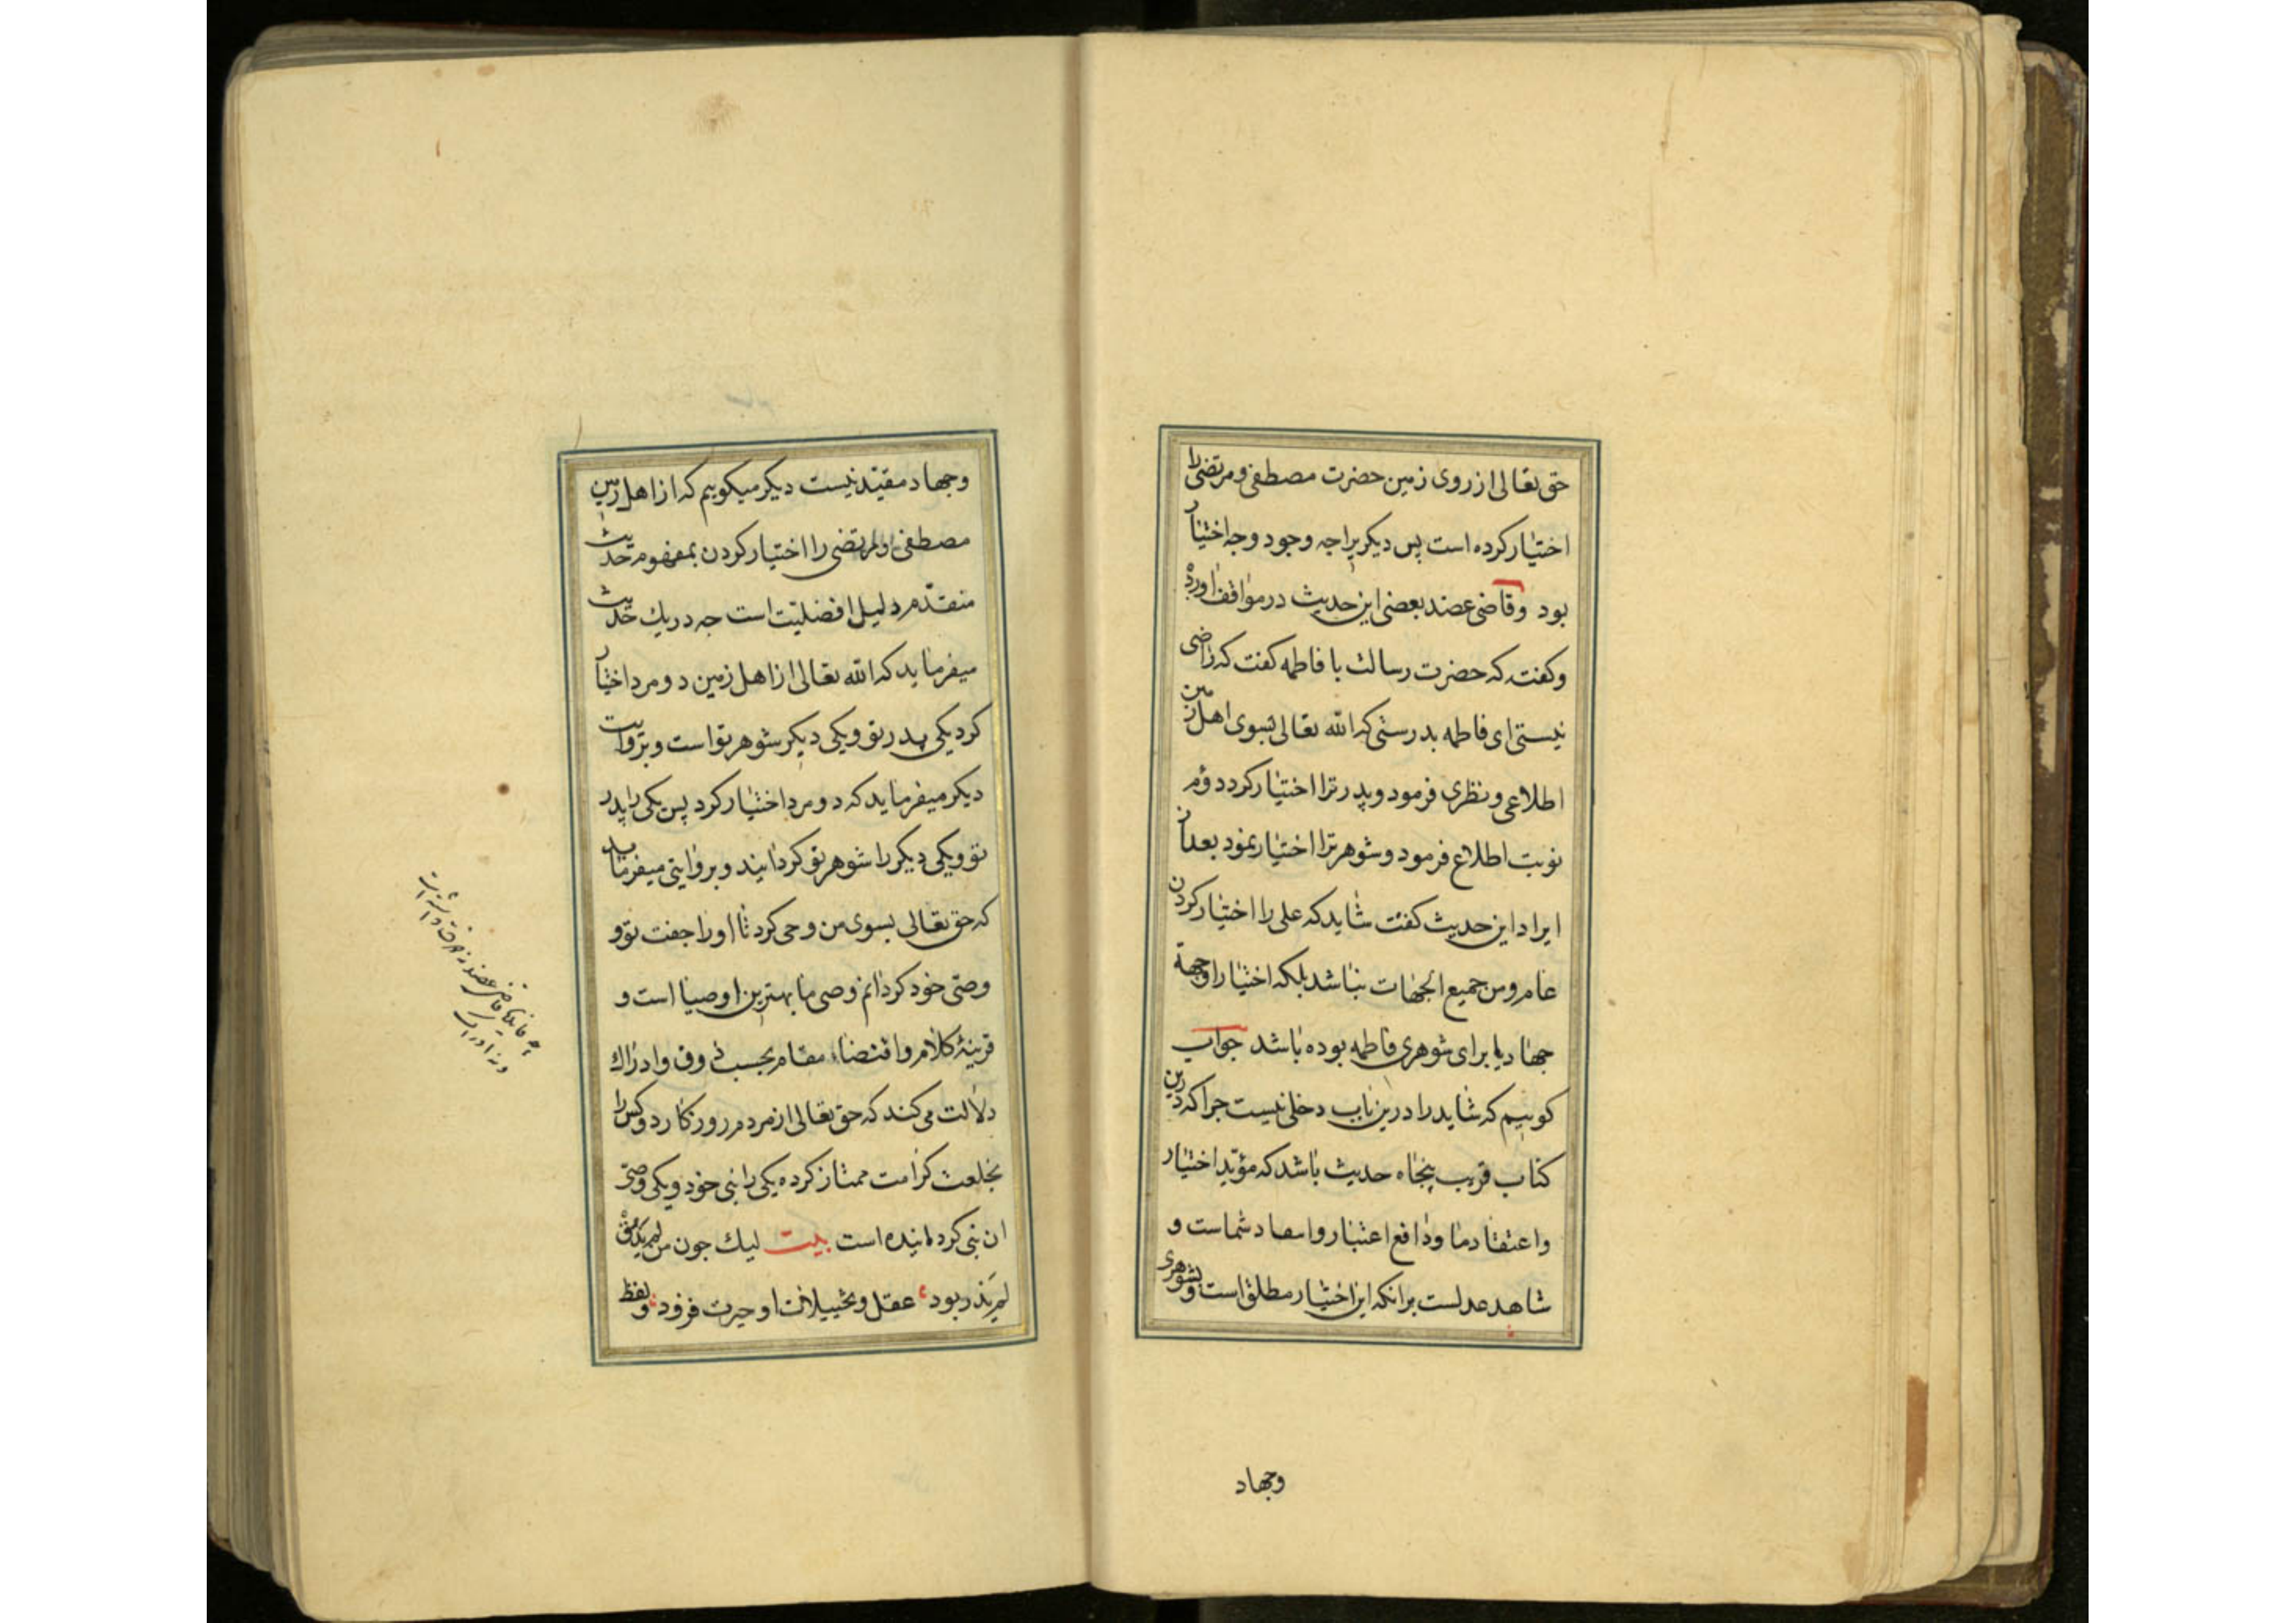 حق تعالی از روی زمین حضرت مصطفی و مرتضی را
اختیار کرده است پس دیکر براجه وجود وجه اختیار
بود وقاضی عضد بعضی این حدیث در مواقف آورده
وکفته که حضرت رسالت با فاطمه کفت که راضی
نیستی ای فاطمه بدرستی که الله تعالی بسوی اهل زمین
اطلاعی ونظری فرمود وپدر ترا اختیار کرد دوم
نوبت اطلاع فرمود وشوهر ترا اختیار نمود بعد از
ایراد این حدیث کفت شاید که علی را اختیار کردن
عام ومن جمیع الجهات نباشد بلکه اختیار او جهة
جهاد یا برای شوهری فاطمه بوده باشد جواب
کوییم که شاید را درین باب دخلی نیست جرا که درین
کتاب قریب پنجاه حدیث باشد که مؤید اختیار
واعتقاد ما ودافع اعتبار و شماست و
شاهد عدلست برانکه این اختیار مطلق است وبشوهری
وجهاد
وجهاد مقید نیست دیکر میکوییم که از اهل زمین
مصطفی و مرتضی را اختیار کردن بمفهوم حدیث
متقدم دلیل افضلیت است جه در یك حدیث
میفرماید که الله تعالی از اهل زمین دو مرد اختیار
کرد یکی پدر تو ویکی دیکر شوهر تو است وبروایت
دیکر میفرماید که دو مرد اختیار کرد پس یکی را پدر
تو ویکی دیکر را شوهر تو کردانید وبروایتی میفرماید
که حق تعالی بسوی من وحی کرد تا او را جفت تو و
وصی خود کردانم وصی ما بهترین اوصیا است و
قرینهٔ کلام واقتضاء مقام بحسب ذوق وادراك
دلالت می کند که حق تعالی از مردم روزکار دو کس را
بخلعت کرامت ممتاز کرده یکی را نبی خود ویکی وصی
ان نبی کردانیده است بیت لیك جون من لم یذق
لم یدر بود عقل وتخییلات او حیرت فزود ولفظ